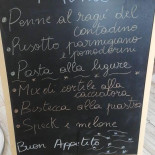 • Penne al ragù del
contadino
• Risotto parmigiano
e pomodorini
• Pasta alla ligure
• Mix di cortile alla
cacciatora
• Bistecca alla piastra
• Speck e melone
Buon Appetito